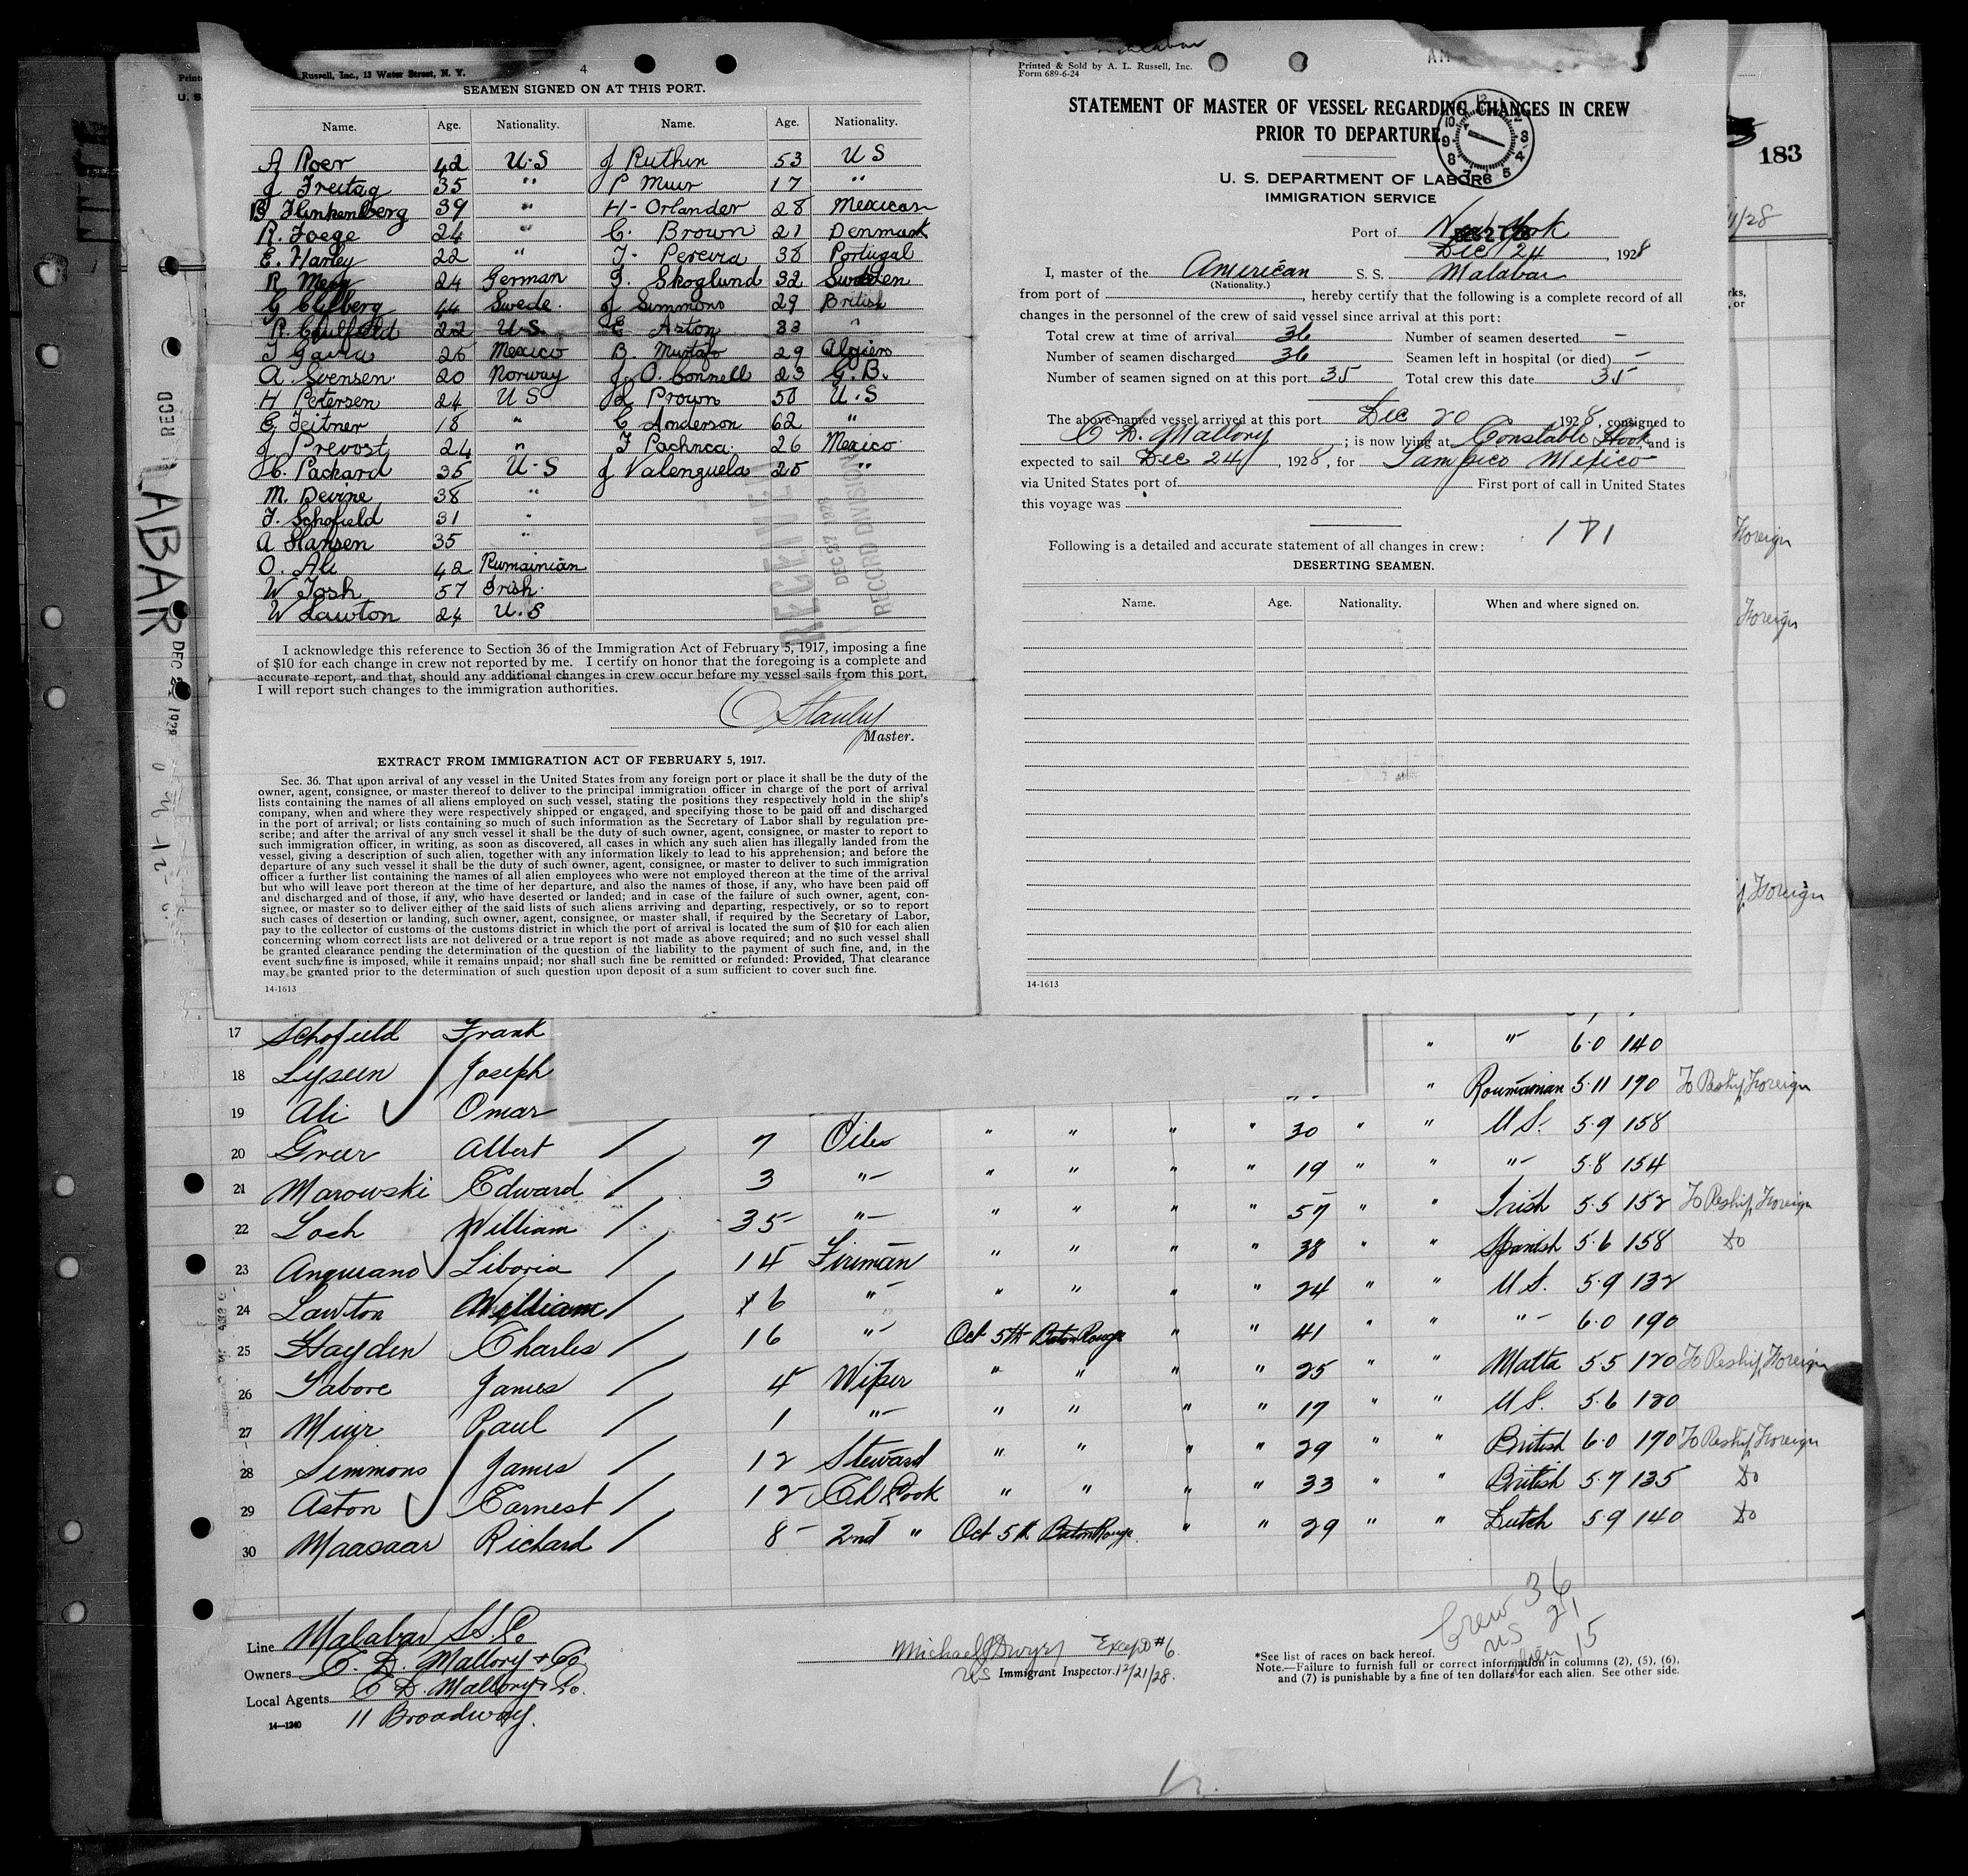 Russell, Inc., 13 Water Street, N. Y.
4
SEAMEN SIGNED ON AT THIS PORT.
Name. Age. Nationality. Name. Age. Nationality.
A Roer 42 U.S J Ruthen 53 U S
J Freitag 35 " P Muir 17 "
B Flinkenberg 39 " H- Orlander 28 Mexican
R. Foege 24 " C. Brown 21 Denmark
E. Harley 22 " J. Pereira 38 Portugal
R 24 German J. Skoglund 32 Sweden
G 44 Swede. J Simmons 29 British
R. Caulfield 22 U.S. E Aston 33 "
J Garcia 26 Mexico B. Mustafo 29 Algiers
A. Svensen. 20 Norway J. O. Connell 23 G.B.
H Petersen 24 U S Prown 50 U.S
G Feitner 18 " C Anderson 62 "
J Prevost 24 " F Pachnca. 26 Mexico.
C. Packard 35 U.S J Valenguela 25 "
M. Devine 38 "
F. Schofield 31 "
A Hansen 35 "
O. Ali 42 Rumainian
W Josh 57 Irish.
W Lawton 24 U.S
I acknowledge this reference to Section 36 of the Immigration Act of February 5, 1917, imposing a fine
of $10 for each change in crew not reported by me. I certify on honor that the foregoing is a complete and
accurate report, and that, should any additional changes in crew occur before my vessel sails from this port,
I will report such changes to the immigration authorities.
C Stanley
Master.
EXTRACT FROM IMMIGRATION ACT OF FEBRUARY 5, 1917.
Sec. 36. That upon arrival of any vessel in the United States from any foreign port or place it shall be the duty of the
owner, agent, consignee, or master thereof to deliver to the principal immigration officer in charge of the port of arrival
lists containing the names of all aliens employed on such vessel, stating the positions they respectively hold in the ship's
company, when and where they were respectively shipped or engaged, and specifying those to be paid off and discharged
in the port of arrival; or lists containing so much of such information as the Secretary of Labor shall by regulation pre-
scribe; and after the arrival of any such vessel it shall be the duty of such owner, agent, consignee, or master to report to
such immigration officer, in writing, as soon as discovered, all cases in which any such alien has illegally landed from the
vessel, giving a description of such alien, together with any information likely to lead to his apprehension; and before the
departure of any such vessel it shall be the duty of such owner, agent, consignee, or master to deliver to such immigration
officer a further list containing the names of all alien employees who were not employed thereon at the time of the arrival
but who will leave port thereon at the time of her departure, and also the names of those, if any, who have been paid off
and discharged and of those, if any, who have deserted or landed; and in case of the failure of such owner, agent, con-
signee, or master so to deliver either of the said lists of such aliens arriving and departing, respectively, or so to report
such cases of desertion or landing, such owner, agent, consignee, or master shall, if required by the Secretary of Labor,
pay to the collector of customs of the customs district in which the port of arrival is located the sum of $10 for each alien
concerning whom correct lists are not delivered or a true report is not made as above required; and no such vessel shall
be granted clearance pending the determination of the question of the liability to the payment of such fine, and, in the
event such fine is imposed, while it remains unpaid; nor shall such fine be remitted or refunded: Provided, That clearance
may be granted prior to the determination of such question upon deposit of a sum sufficient to cover such fine.
14-1613
RECEIVED
DEC 27 1928
RECORD DIVISION
Printed & Sold by A. L. Russell, Inc.
Form 689-6-24
AM
STATEMENT OF MASTER OF VESSEL REGARDING CHANGES IN CREW
PRIOR TO DEPARTURE
U. S. DEPARTMENT OF LABOR
IMMIGRATION SERVICE
Port of New York
Dec 24, 1928
I, master of the American S. S. Malabar
(Nationality.)
from port of , hereby certify that the following is a complete record of all
changes in the personnel of the crew of said vessel since arrival at this port:
Total crew at time of arrival 36 Number of seamen deserted -
Number of seamen discharged 36 Seamen left in hospital (or died) -
Number of seamen signed on at this port 35 Total crew this date 35
The above-named vessel arrived at this port Dec 20 1928, consigned to
C D. Mallory ; is now lying at Constable Hook, and is
expected to sail Dec 24, 1928, for Tampico Mexico
via United States port of First port of call in United States
this voyage was
171
Following is a detailed and accurate statement of all changes in crew:
DESERTING SEAMEN.
Name. Age. Nationality. When and where signed on.
14-1613
183
11/28
rks,
or
Foreign
Foreign
Foreign
RECD
LABAR
DEC 1928
17 Schofield Frank " " 6.0 140
18 Lyseen Joseph " Roumanian 5.11 170 To Reship Foreign
19 Ali Omar 30 " " U S. 5.9 158
20 Greer Albert 7 Oiler " " " " 19 " " " 5.8 154
21 Marowski Edward 3 " " " " " 57 " " Irish 5.5 152 To Reship Foreign
22 Loch William 35 " " " " " 38 " " Spanish 5.6 158 do
23 Anguiano Liboria 14 Fireman " " " " 24 " " U S. 5.9 132
24 Lawton William 6 " " " 6.0 190
25 Hayden Charles 16 " Oct 5th Baton Rouge " " 41 " " Malta 5.5 120 To Reship Foreign
26 Tabore James 4 Wiper " " " " 25 " " U S. 5.6 120
27 Muir Paul 1 " " " " " 17 " " British 6.0 170 To Reship Foreign
28 Simmons James 12 Steward " " " " 29 " " British 5.7 135 do
29 Aston Earnest 12 Ch Cook " " " " 33 " " Dutch 5.9 140 do
30 Maasaar Richard 8 2nd " Oct 5th Baton Rouge " " 29
Line Malabar S.S. Co
Owners C. D. Mallory & Co
Local Agents C D. Mallory & Co.
14-1240 11 Broadway.
Michael J Dwyer Except #6
US Immigrant Inspector. 12/21/28.
Crew 36
US 21
Alien 15
*See list of races on back hereof.
Note.—Failure to furnish full or correct information in columns (2), (5), (6),
and (7) is punishable by a fine of ten dollars for each alien. See other side.